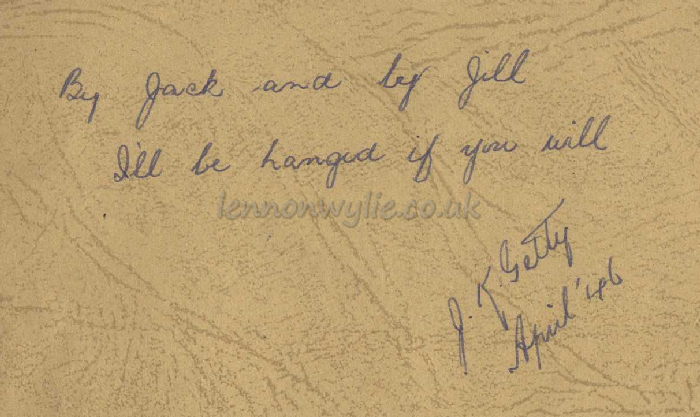 By Jack and by Jill
I'll be hanged if you will
lennonwylie.co.uk
J. K Getty
April '46